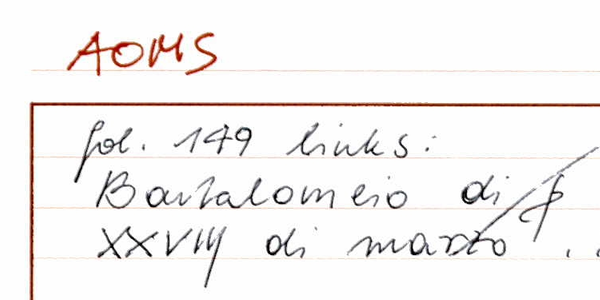 AOMS
fol. 149 links:
Bartalomeio di
XXVIIJ di marzo . .